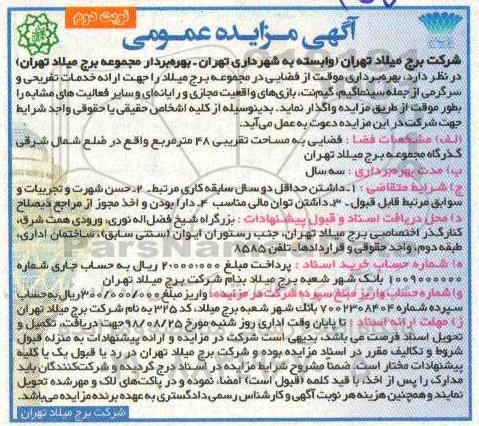 نوبت دوم
آگهی مزایده عمومی
شرکت برج میلاد تهران (وابسته به شهرداری تهران-بهره‌بردار مجموعه برج میلاد تهران)
در نظر دارد، بهره‌برداری موقت از فضایی در مجموعه برج میلاد را جهت ارائه خدمات تفریحی و
سرگرمی از جمله سینماگیم، گیم‌نت، بازی‌های واقعیت مجازی و رایانه‌ای و سایر فعالیت های مشابه را
بطور موقت از طریق مزایده واگذار نماید. بدینوسیله از کلیه اشخاص حقیقی یا حقوقی واجد شرایط
جهت شرکت در این مزایده دعوت به عمل می‌آید.
الف) مشخصات فضا : فضایی به مساحت تقریبی ۴۸ مترمربع واقع در ضلع شمال شرقی
گذرگاه مجموعه برج میلاد تهران
ب) مدت بهره‌برداری : سه سال
ج) شرایط متقاضی : ۱-داشتن حداقل دو سال سابقه کاری مرتبط. ۲-حسن شهرت و تجربیات و
سوابق مرتبط قابل قبول. ۳-داشتن توان مالی مناسب ۴-دارا بودن و اخذ مجوز از مراجع ذیصلاح
د) محل دریافت اسناد و قبول پیشنهادات : بزرگراه شیخ فضل‌اله نوری، ورودی همت شرق،
کنارگذر اختصاصی برج میلاد تهران، جنب رستوران ایوان (سنتی سابق)، ساختمان اداری،
طبقه دوم، واحد حقوقی و قراردادها. تلفن ۸۵۸۵
ه) شماره حساب خرید اسناد : پرداخت مبلغ ۲/۰۰۰/۰۰۰ ریال به حساب جاری شماره
۱۰۰۹۰۰۰۰۰۰ بانک شهر شعبه برج میلاد بنام شرکت برج میلاد تهران
و) شماره حساب واریز مبلغ سپرده شرکت در مزایده: واریز مبلغ ۲۰۰/۰۰۰/۰۰۰ ریال به حساب
سپرده شماره ۷۰۰۲۳۰۸۴۰۴ بانک شهر شعبه برج میلاد، کد ۳۲۵ به نام شرکت برج میلاد تهران
ز) مهلت ارائه اسناد : تا پایان وقت اداری روز شنبه مورخ ۹۸/۰۸/۲۵ جهت دریافت، تکمیل و
تحویل اسناد فرصت می باشد، بدیهی است شرکت در مزایده و ارائه پیشنهادات به منزله قبول
شروط و تکالیف مقرر در اسناد مزایده بوده و شرکت برج میلاد تهران در رد یا قبول یک یا کلیه
پیشنهادات مختار است ضمنا مشروح شرایط مزایده در اسناد درج گردیده و شرکت‌کنندگان باید
مدارک را پس از اخذ، با قید کلمه (قبول است) امضاء نموده و در پاکت‌های لاک و مهرشده تحویل
نمایند و همچنین هزینه هر نوبت آگهی و کارشناس رسمی دادگستری به عهده برنده مزایده می‌باشد.
شرکت برج میلاد تهران